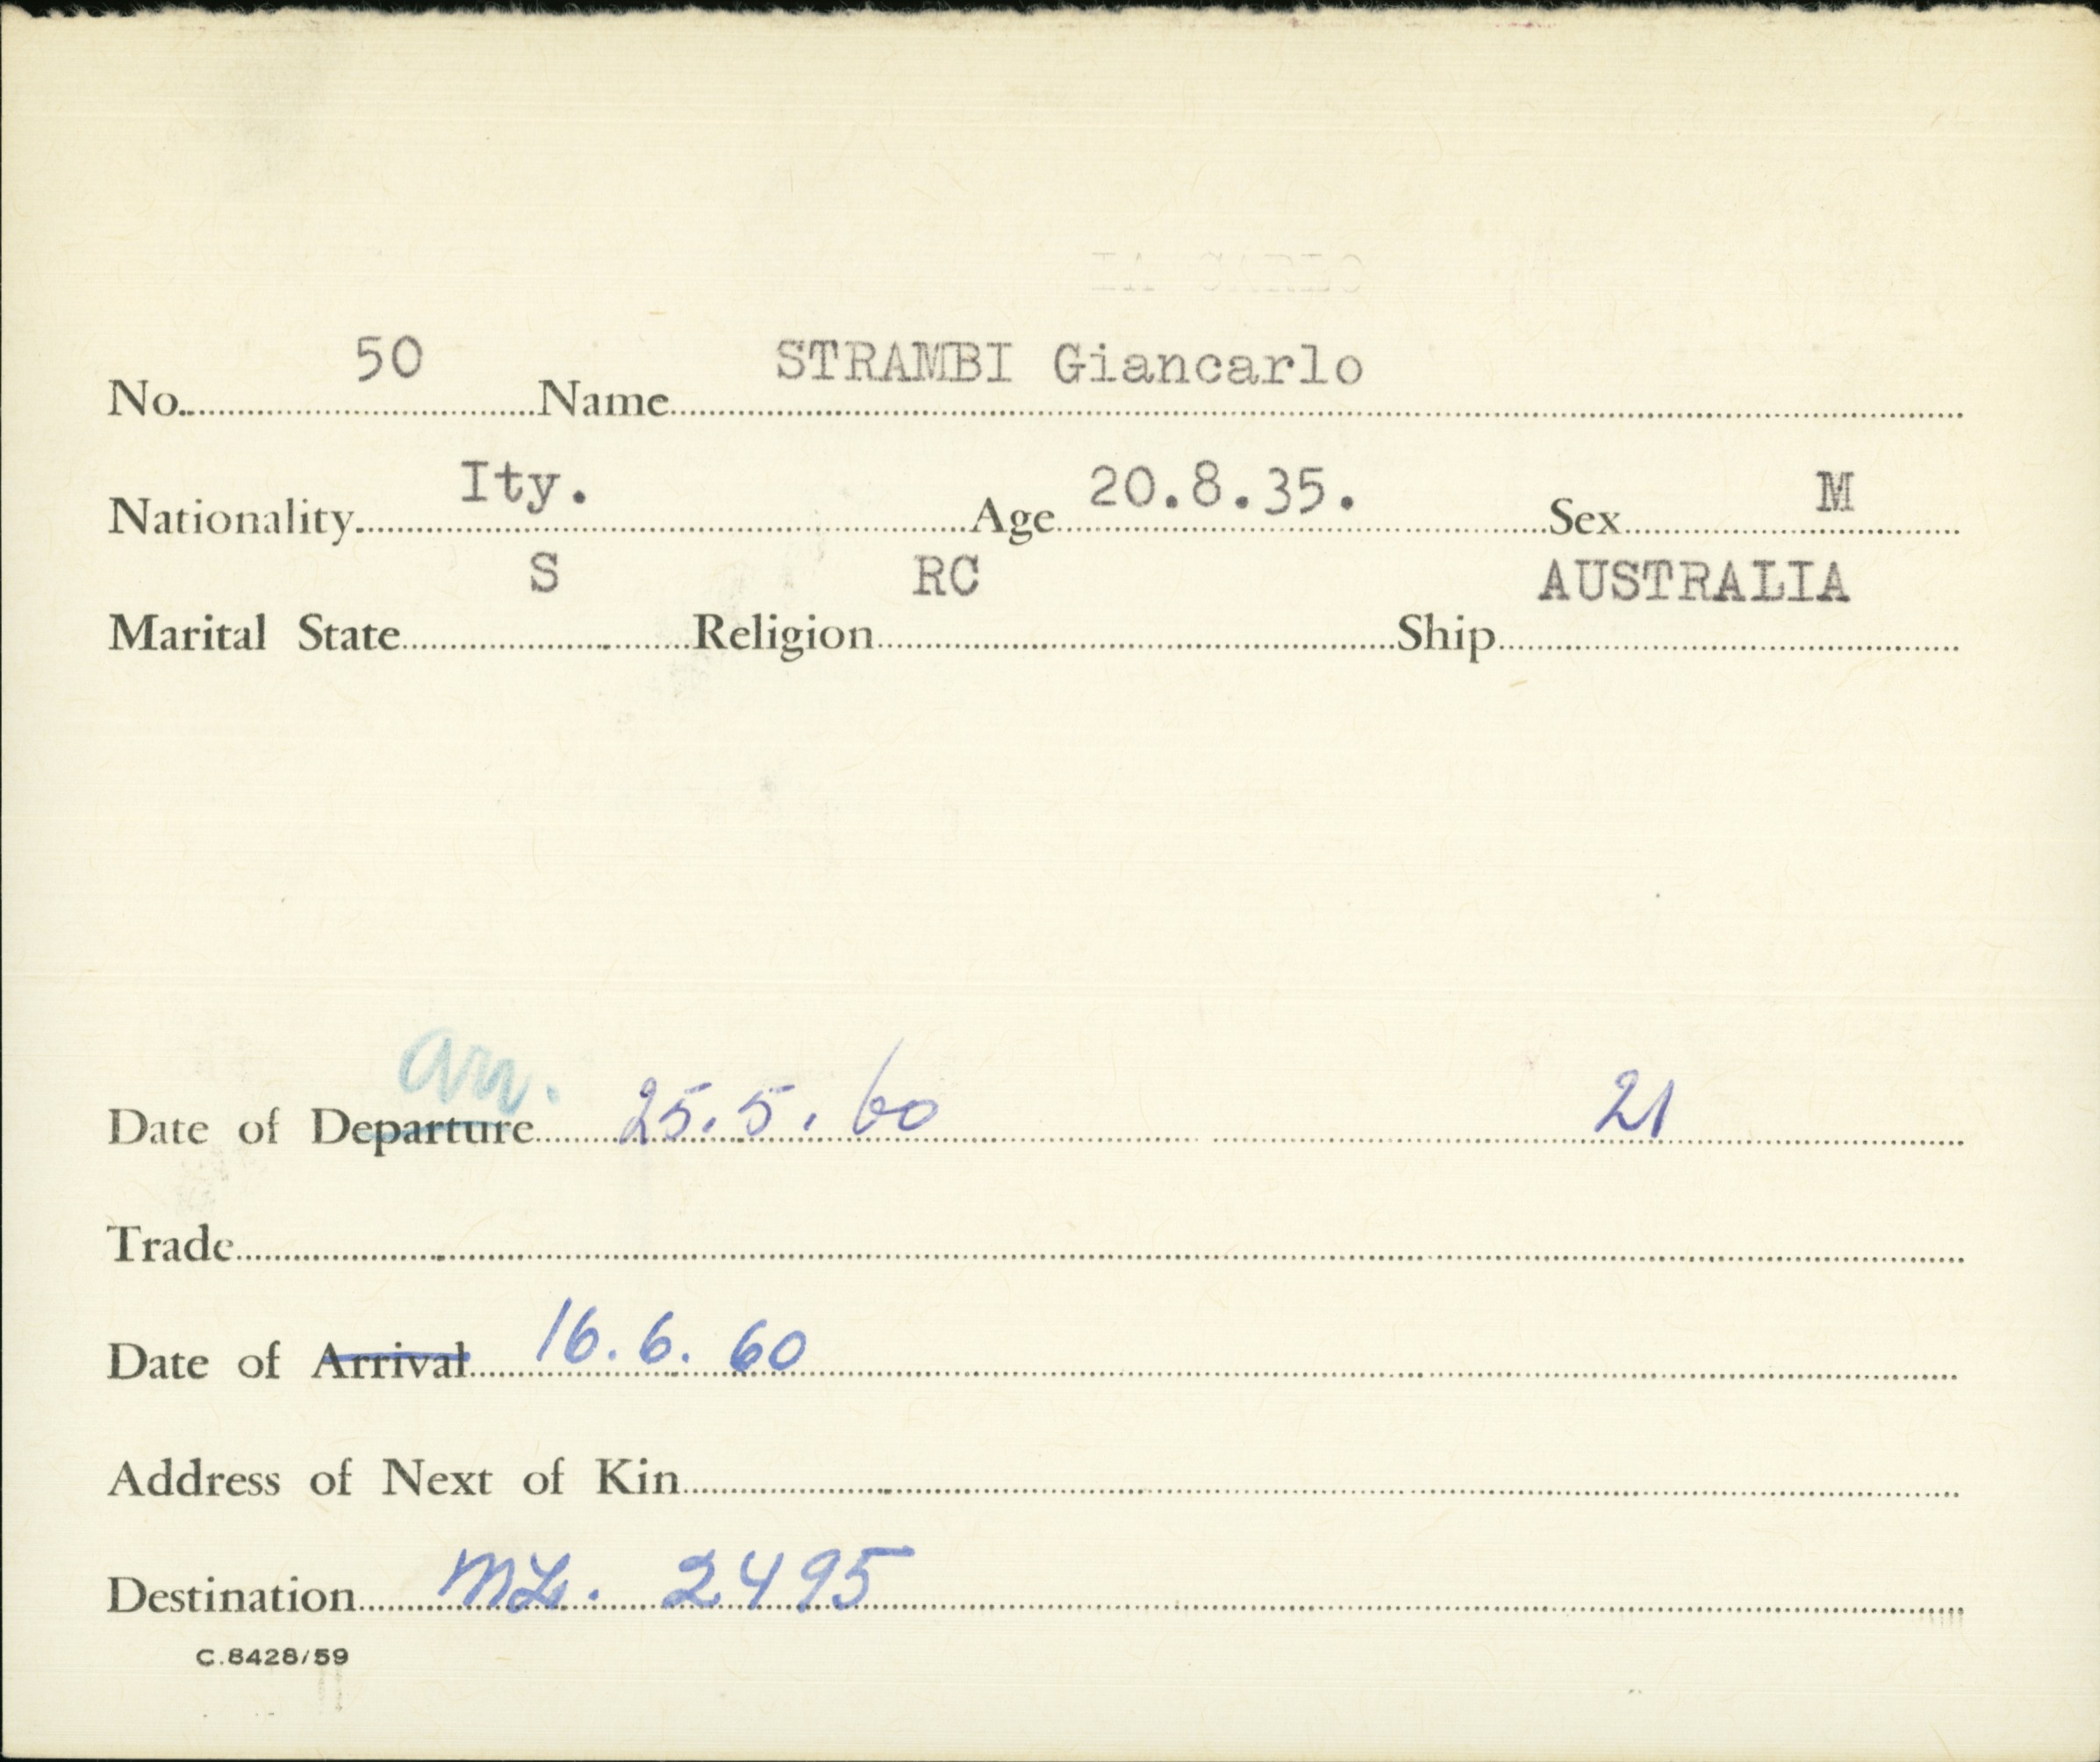 No. 50 Name STRAMBI Giancarlo
Nationality Ity. Age 20.8.35. Sex M
Marital State S Religion RC Ship AUSTRALIA
arr.
Date of Departure 25.5.60 21
Trade
Date of Arrival 16.6.60
Address of Next of Kin
Destination ML. 2495
C.8428/59